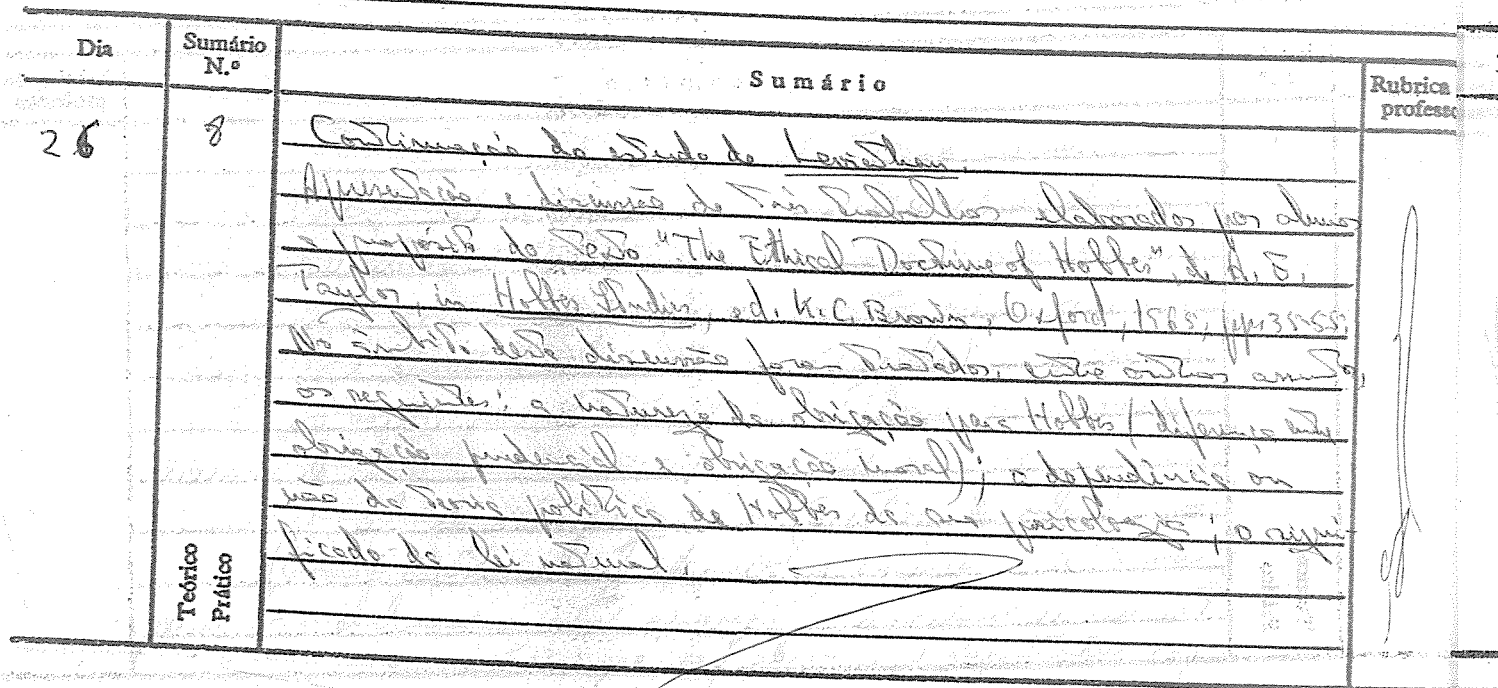 Dia
Sumário N.º
Sumário
Rubrica professo
26
8
Continuação do estudo de Leviathan.
Apresentação e discussão de três trabalhos elaborados por alunos
a propósito do texto "The Ethical Doctrine of Hobbes", de A. E.
Taylor, in Hobbes Studies, ed. K. C. Brown, Oxford, 1965, pp. 35-55.
No âmbito desta discussão foram tratados, entre outros assuntos,
os seguintes: a natureza da obrigação para Hobbes (diferença entre
obrigação prudencial e obrigação moral); a dependência ou
não da teoria política de Hobbes da sua psicologia; o signi-
ficado da lei natural.
Teórico
Prático